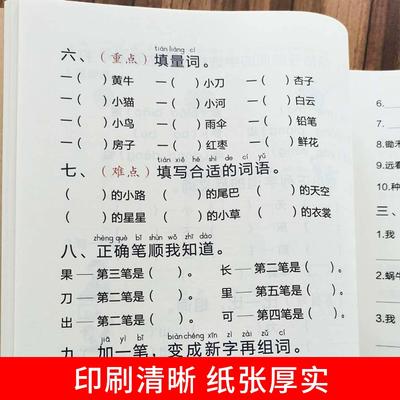 tián liàng cí
六、（重点）填量词。
一（ ）黄牛 一（ ）小刀 一（ ）杏子
一（ ）小猫 一（ ）小河 一（ ）白云
一（ ）小鸟 一（ ）雨伞 一（ ）铅笔
一（ ）房子 一（ ）红枣 一（ ）鲜花
tián xiě hé shì de cí yǔ
七、（难点）填写合适的词语。
（ ）的小路 （ ）的尾巴 （ ）的天空
（ ）的星星 （ ）的小草 （ ）的衣裳
zhèng què bǐ shùn wǒ zhī dào
八、正确笔顺我知道。
果—第三笔是（ ）。 长—第二笔是（ ）。
刀—第二笔是（ ）。 里—第五笔是（ ）。
出—第二笔是（ ）。 可—第四笔是（ ）。
jiā yì bǐ biàn chéng xīn zì zài zǔ cí
九、加一笔，变成新字再组词。
6.
7.
8.
9.
10.
三、
1.我
2.蜗牛
3.我
印刷清晰 纸张厚实